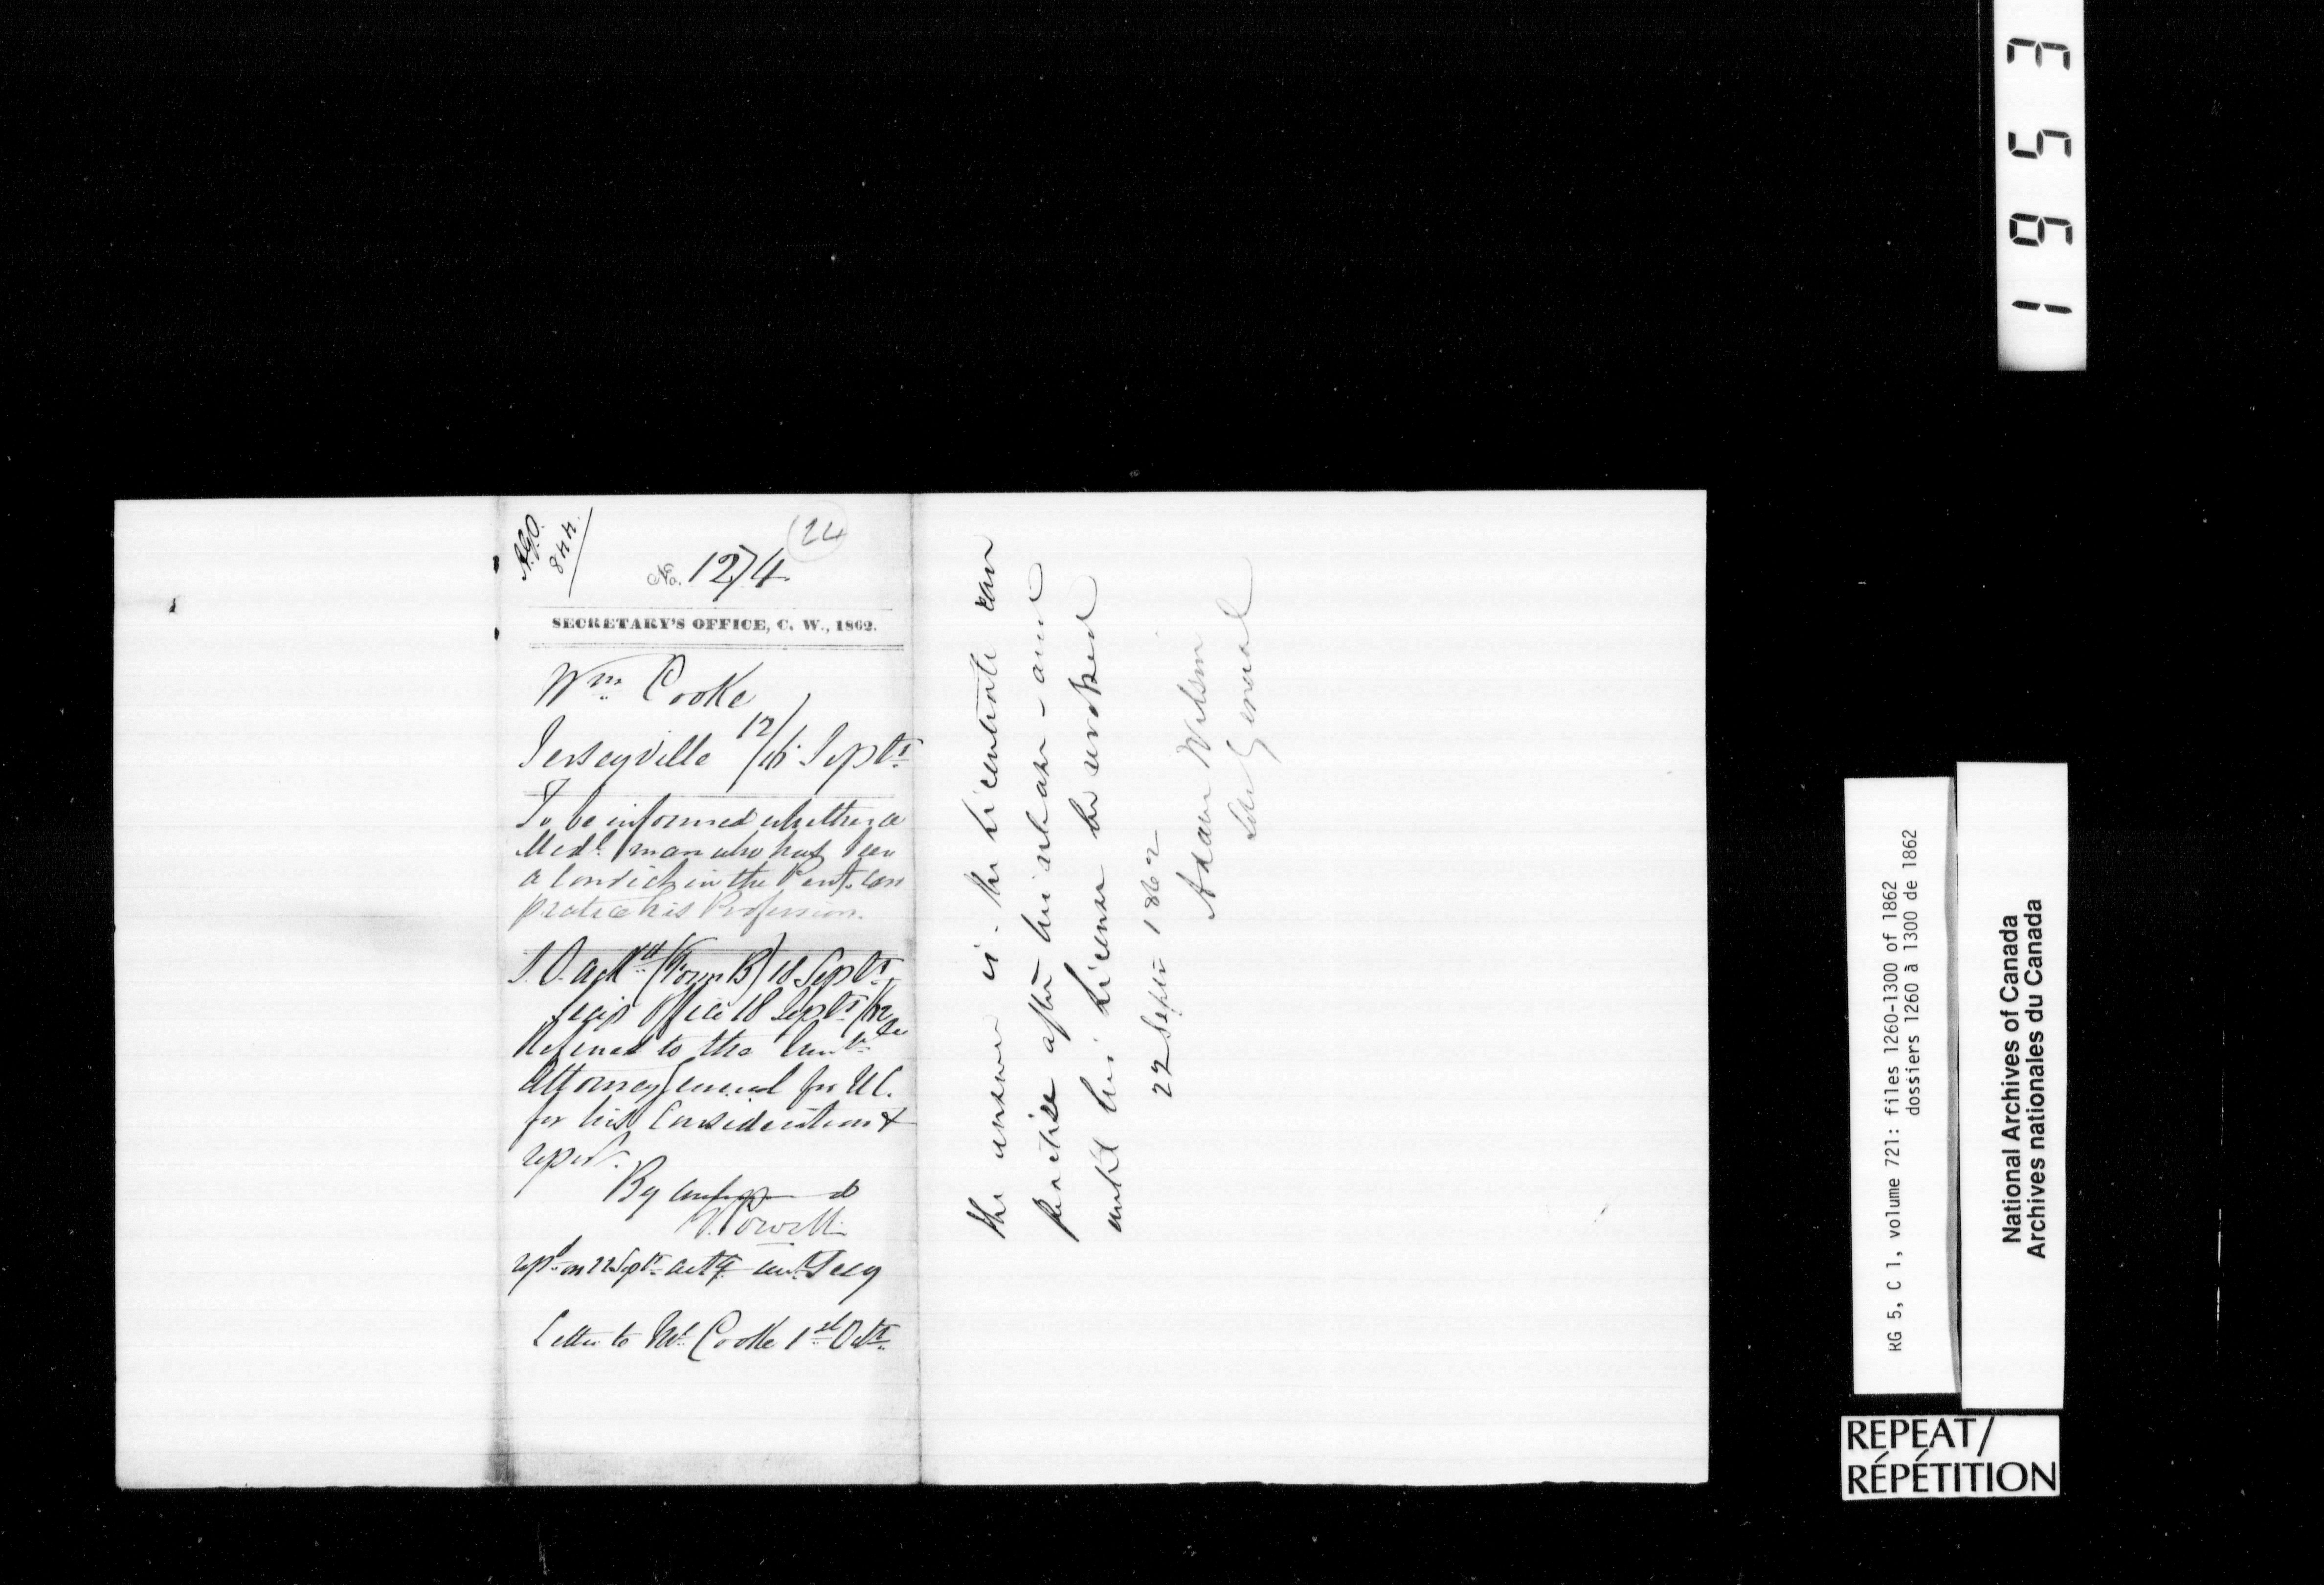 A.G.O.
844
24
No. 1274
SECRETARY'S OFFICE, C. W., 1862.
Wm. Cooke
Jerseyville 12/16 Septr.
To be informed whether a
Medl. man who has been
a Convict in the Penty. can
pratice his Profession.
(Form B) 18 Septr.
Office 18 Septr/62
Referred to the Honble. the
Attorney General for U C.
for his Consideration &
report.
By
Powell
repd. on 22 Septr. Secy
Letter to Mr. Cooke 1st Octr.
the answer is - the Licentiate can
practise after his release - and
until his License be revoked
22 Septr 1862
Adam Wilson
Sol General
1953
RG 5, C 1, volume 721: files 1260-1300 of 1862
dossiers 1260 à 1300 de 1862
National Archives of Canada
Archives nationales du Canada
REPEAT/
RÉPÉTITION